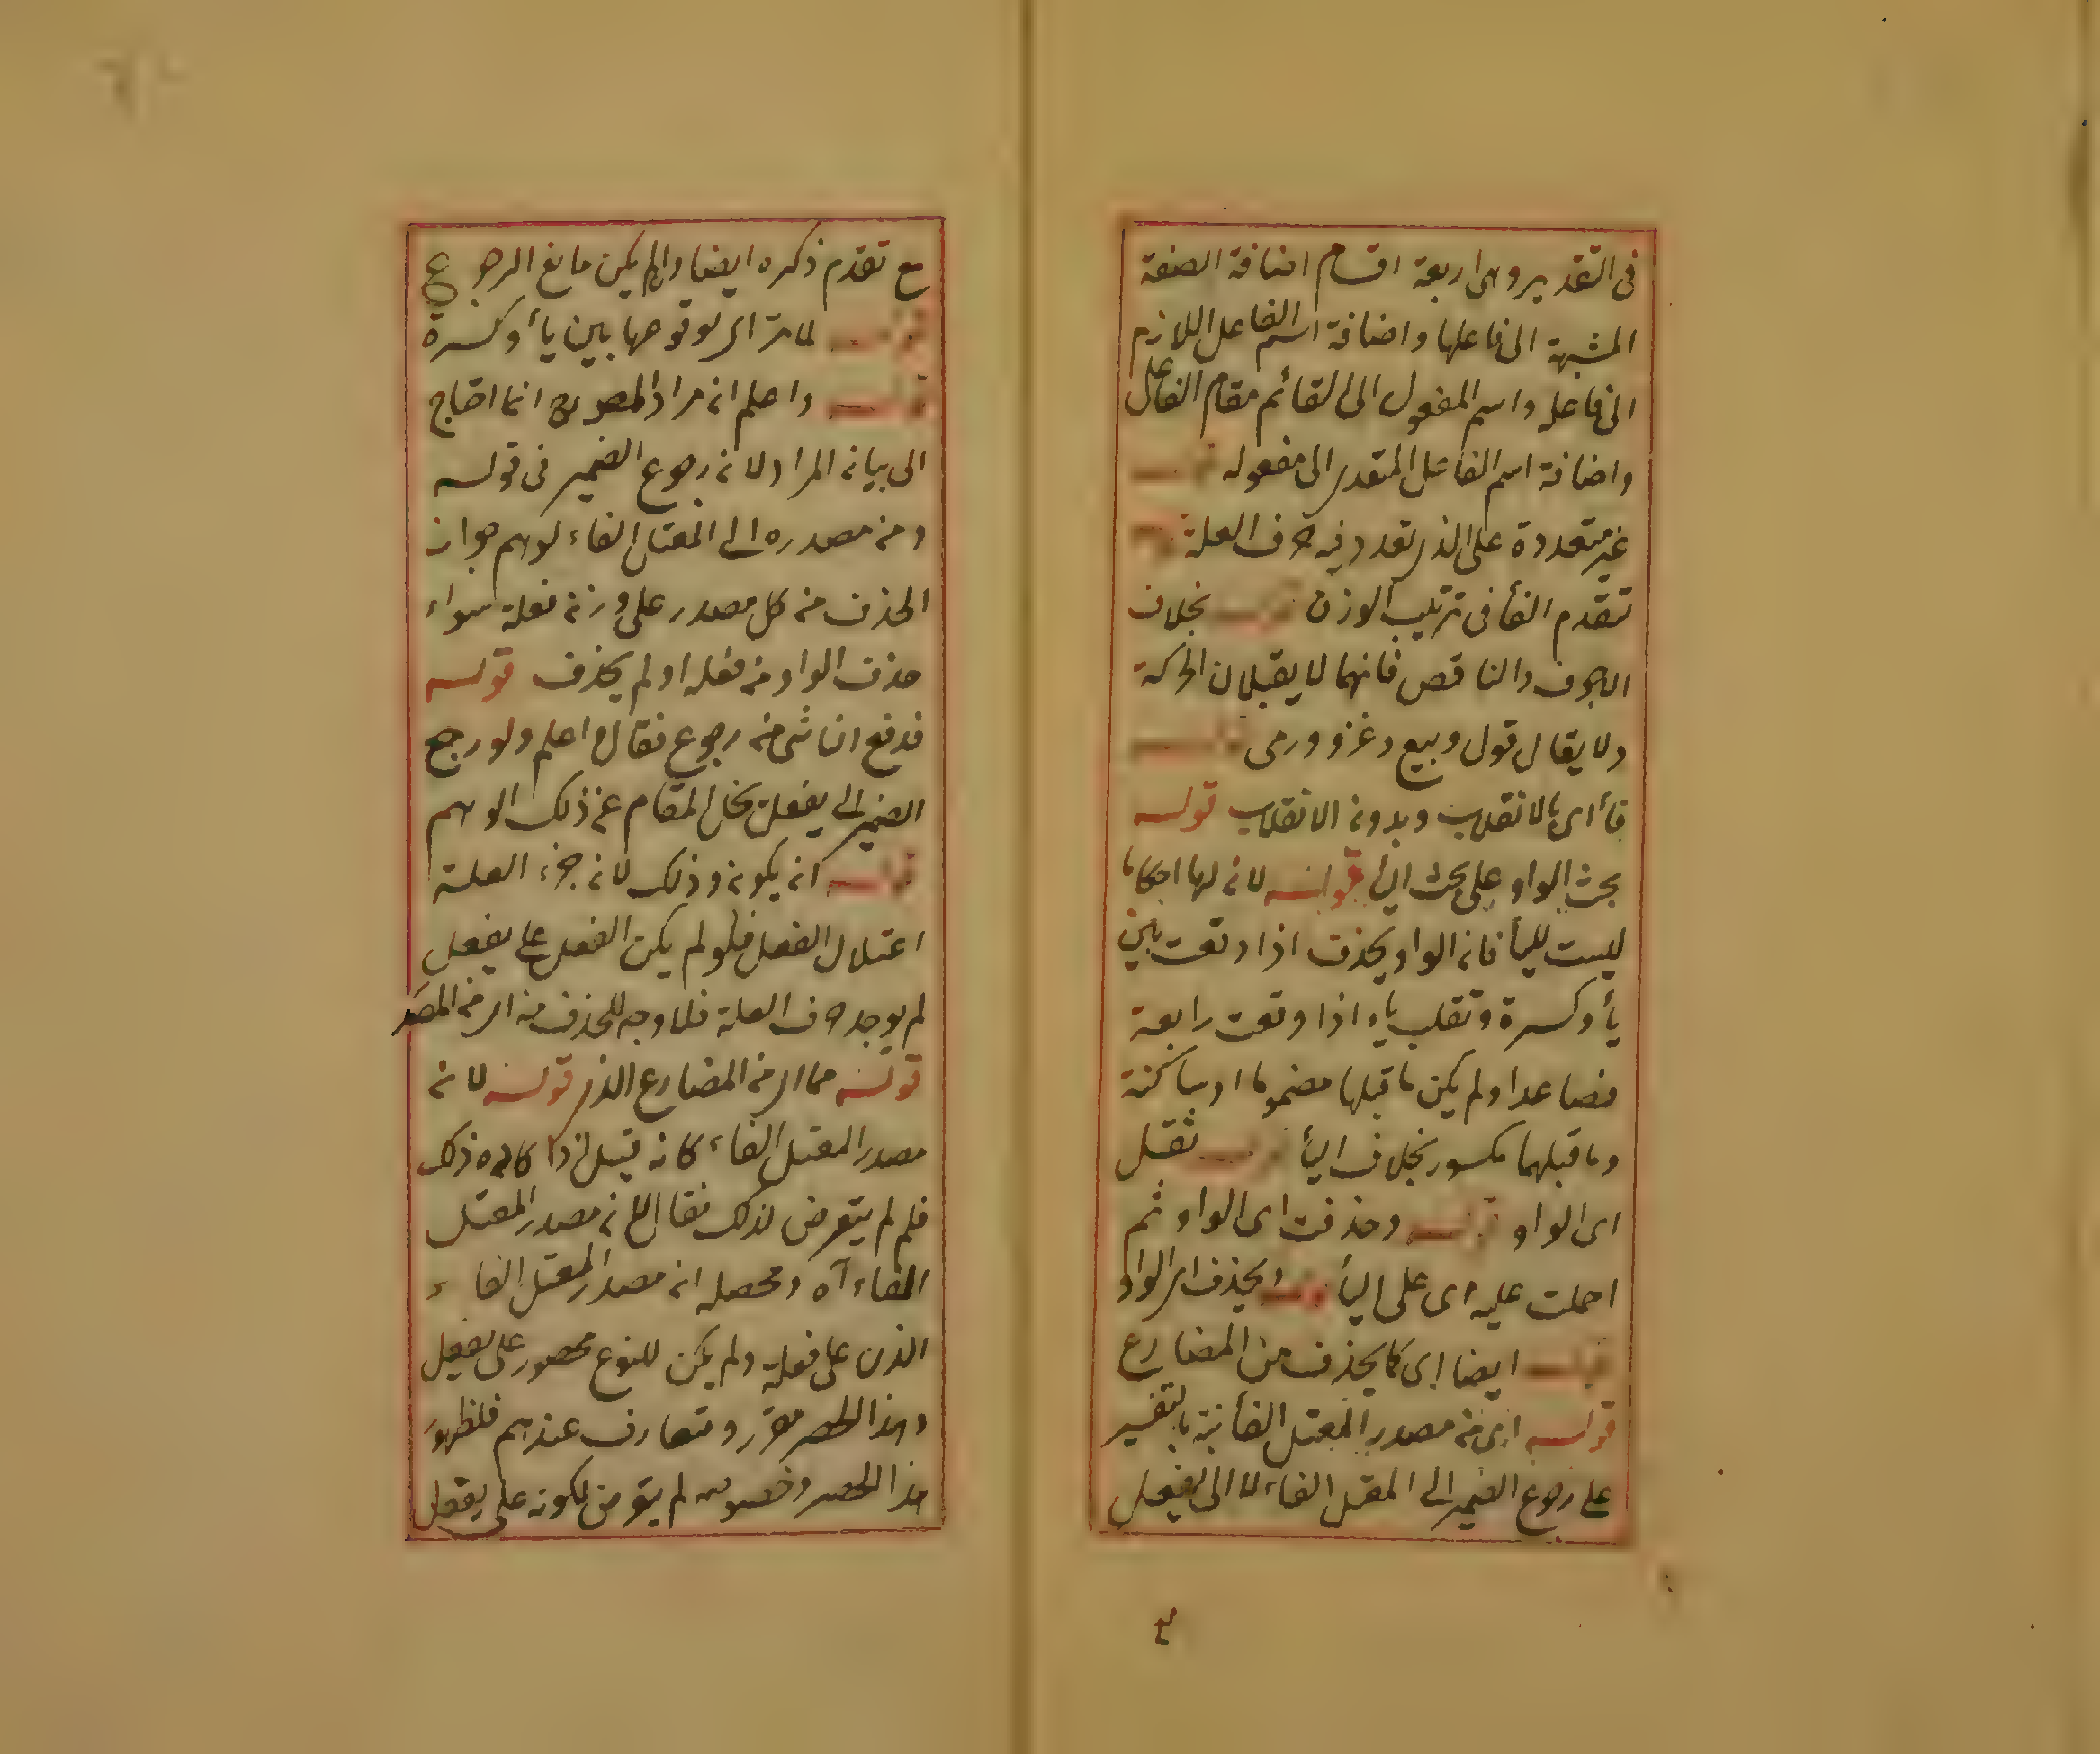 فى التقدير وهى اربعة اقسام اضافة الصفة
المشبهة الى فاعلها واضافة اسم الفاعل اللازم
الى فاعله واسم المفعول الى القائم مقام الفاعل
واضافة اسم الفاعل المتقدر الى مفعوله قوله
غير متعددة على الذى تعدد فيه حرف العلة قوله
تقدم الفأ فى ترتيب الوزن قوله بخلاف
الاجوف والناقص فانهما لا يقبلان الحركة
ولا يقال قول وبيع وغزو ورمى قوله
فأ اى بالانقلاب وبدون الانقلاب قوله
بحث الواو على بحث اليأ قوله لان لها احكاما
ليست لليأ فان الواو يحذف اذا وقعت بين
يأ وكسرة وتقلب ياء اذا وقعت رابعة
فصاعدا ولم يكن ما قبلها مضموما او ساكنة
وما قبلهما مكسور بخلاف اليأ قوله ثقل
اى الواو قوله وحذفت اى الواو ثم
احملت عليه اى على اليأ قوله ويحذف اى الواو
قوله ايضا اى كما يحذف من المضارع
قوله اى من مصدر المعتل الفأ نبه بالتفسير
على رجوع الضمير الى المعتل الفاء لا الى يفعل
مع تقدم ذكره ايضا ولم يكن مانع الرجوع
قوله لما مر اى لوقوعها بين يأ وكسرة
قوله واعلم ان مراد المص انما احتاج
الى بيان المراد لان رجوع الضمير فى قوله
ومن مصدره الى المعتل الفاء لوهم جواز
الحذف من كل مصدر على وزن فعلة سواء
حذف الواو من فعله او لم يحذف قوله
فدفع الناشى من رجوع فقال واعلم ولو رجع
الضمير الى يفعل المقام عن ذلك الوهم
قوله ان يكون وذلك لان جزء العلة
اعتلال الفعل فلو لم يكن الفعل على يفعل
لم يوجد حرف العلة فلا وجه للحذف من اى من المصدر
قوله مما اى من المضارع الذى قوله لان
مصدر المعتل الفاء كان قيل اذا كان مراده ذلك
فلم لم يتعرض لذلك فقال لان مصدر المعتل
الفاء آه ومحصله ان مصدر المعتل الفاء
الذى على فعلة ولم يكن للنوع محصور على يفعل
وهذا الحصر مقرر ومتعارف عندهم فلظهور
هذا الحصر وخصوصه لم يتعرض لكونه على يفعل